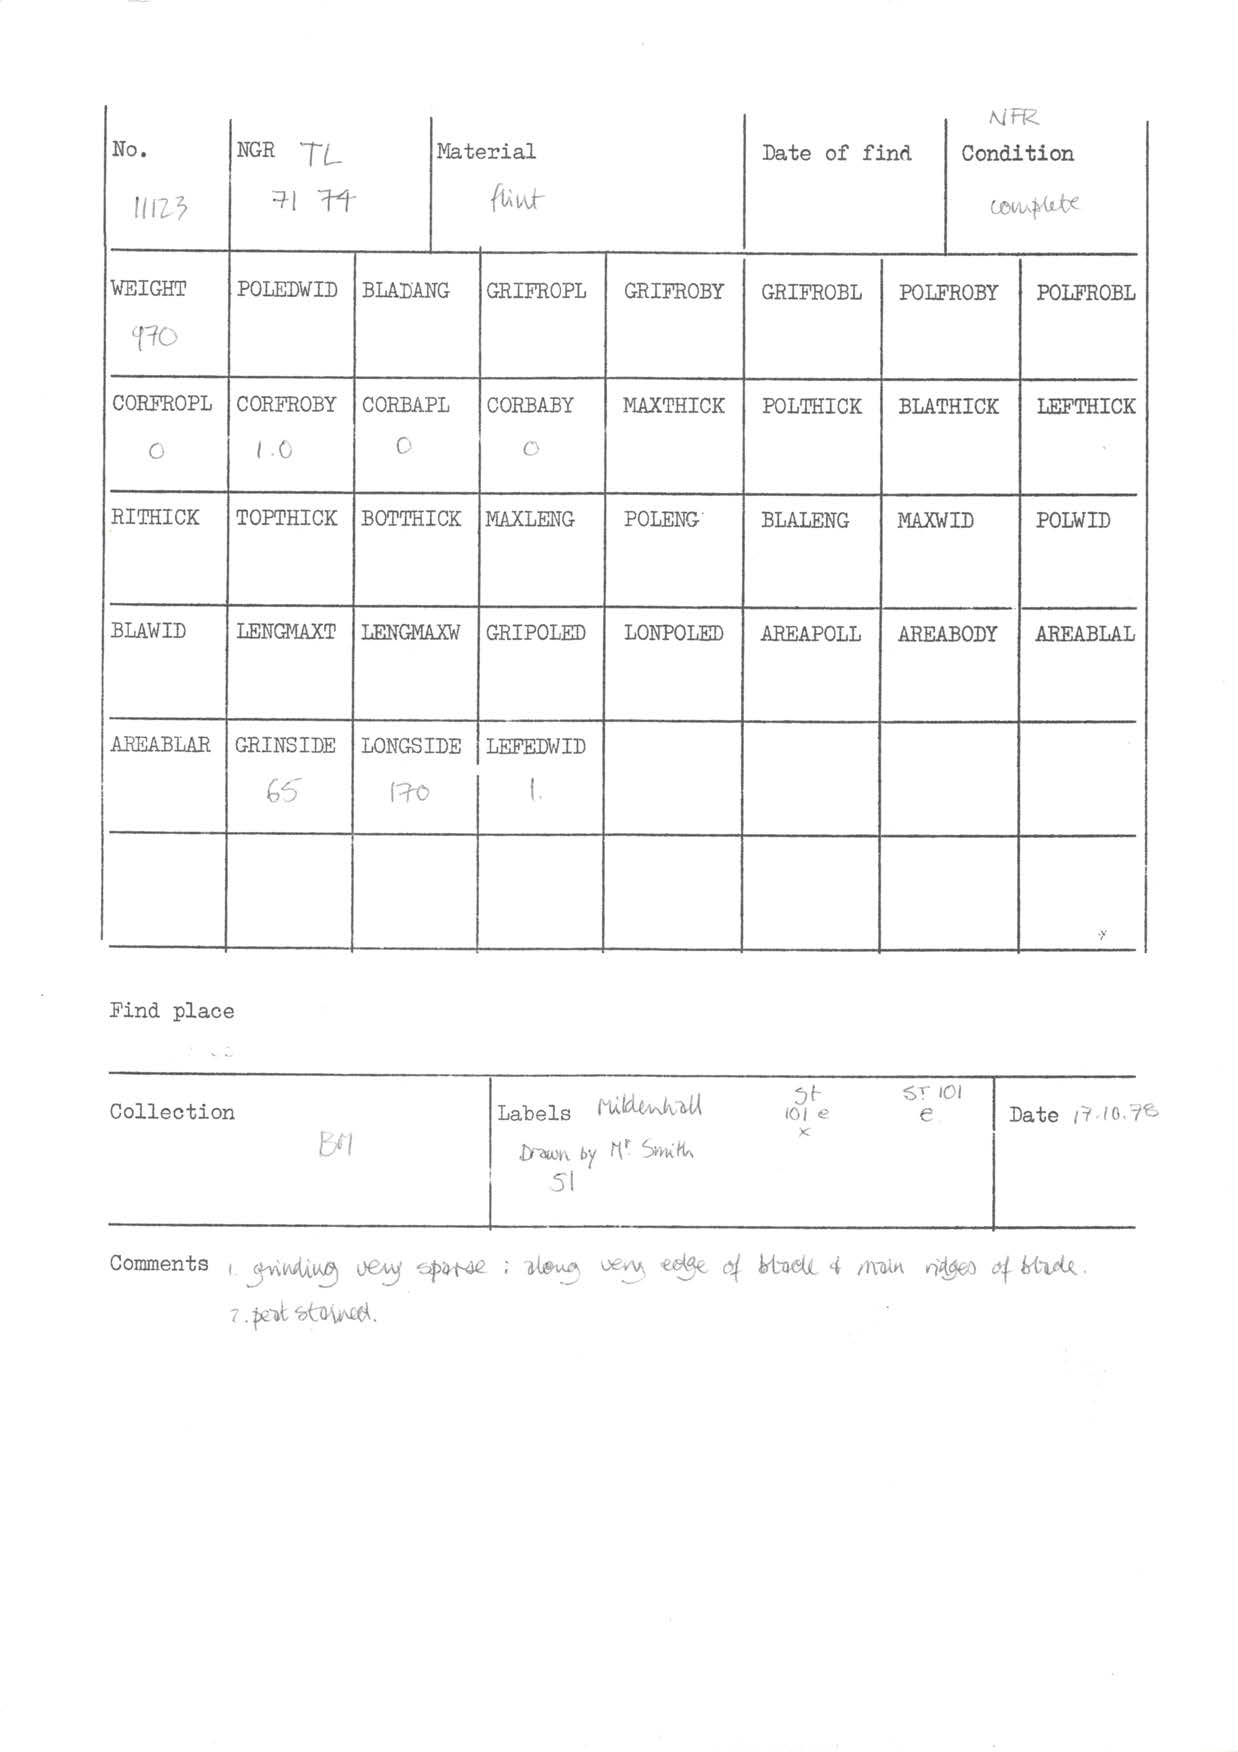 NFR
No. NGR TL Material Date of find Condition
11123 71 74 flint complete
WEIGHT POLEDWID BLADANG GRIFROPL GRIFROBY GRIFROBL POLFROBY POLFROBL
970
CORFROPL CORFROBY CORBAPL CORBABY MAXTHICK POLTHICK BLATHICK LEFTHICK
0 1.0 0 0
RITHICK TOPTHICK BOTTHICK MAXLENG POLENG BLALENG MAXWID POLWID
BLAWID LENGMAXT LENGMAXW GRIPOLED LONPOLED AREAPOLL AREABODY AREABLAL
AREABLAR GRINSIDE LONGSIDE LEFEDWID
65 170 1.
Find place
Collection Labels Mildenhall St ST 101 Date 17.10.78
101 e e
x
BM Drawn by Mr. Smith
51
Comments 1. grinding very sparse ; along very edge of blade & main ridges of blade.
2. peat stained.